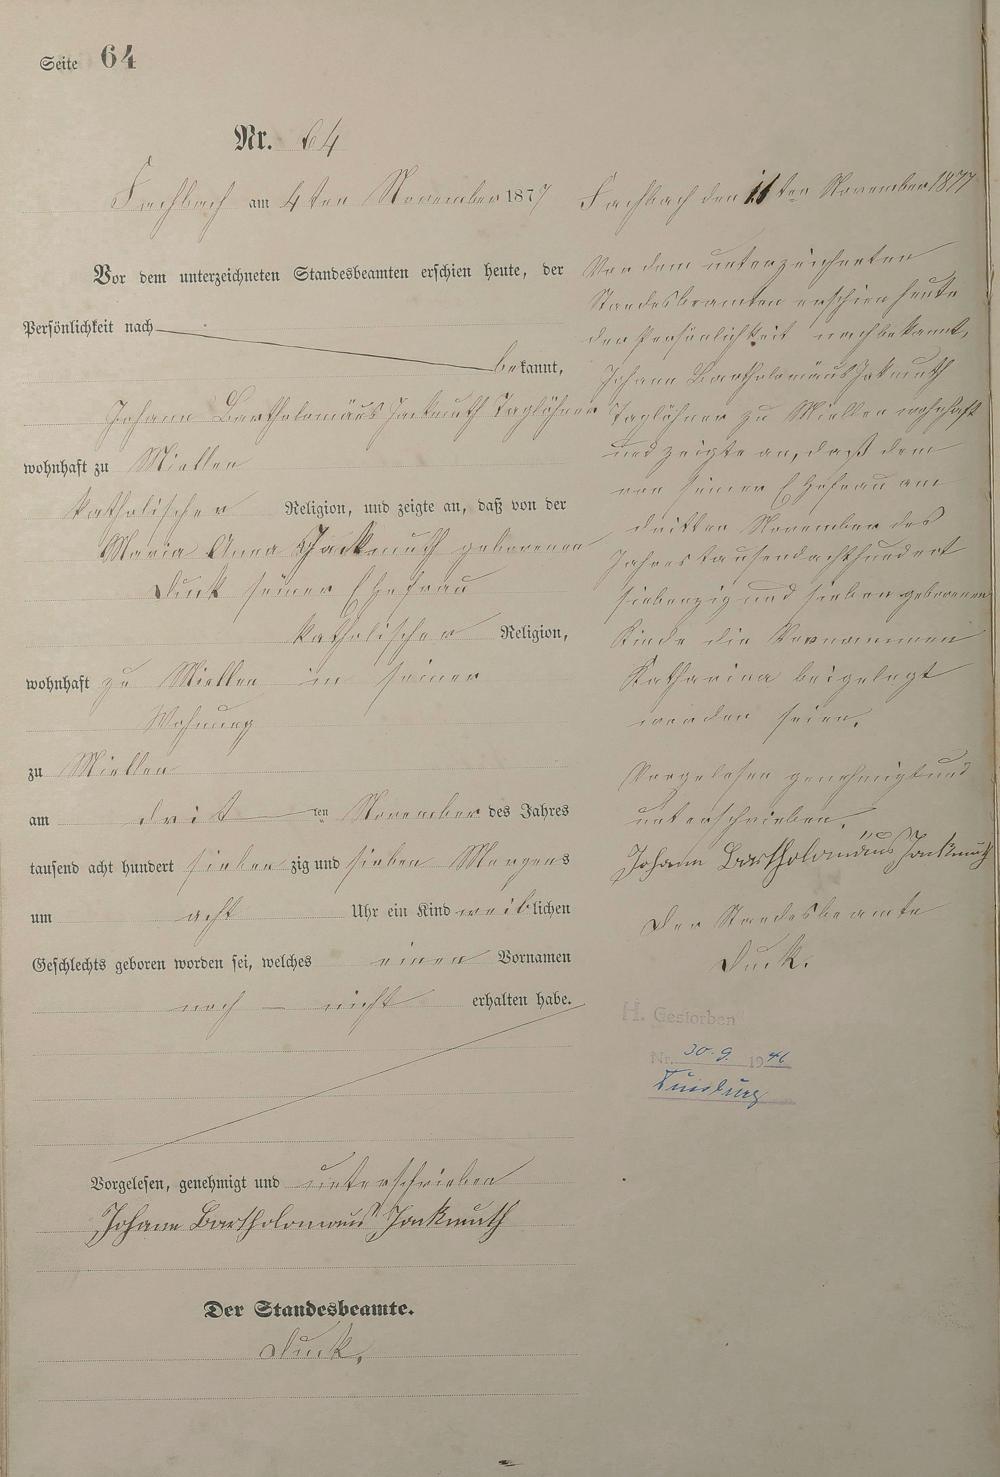 Seite 64
Nr. 64
Fachbach am 4ten November 1877
Vor dem unterzeichneten Standesbeamten erschien heute, der
Persönlichkeit nach
bekannt,
Johann Bartholomäus Jackmuth Taglöhner
wohnhaft zu Miellen
katholischer Religion, und zeigte an, daß von der
Maria Anna Jackmuth geborenen
Duck seiner Ehefrau
katholischer Religion,
wohnhaft zu Miellen in seiner
Wohnung
zu Miellen
am drit ten November des Jahres
tausend acht hundert sieben zig und sieben Morgens
um acht Uhr ein Kind weiblichen
Geschlechts geboren worden sei, welches einen Vornamen
noch – nicht erhalten habe.
Vorgelesen, genehmigt und unterschrieben
Johann Bartholomäus Jackmuth
Der Standesbeamte.
Duck.
Fachbach den 11ten November 1877
Vor dem unterzeichneten
Standesbeamten erschien heute
der Persönlichkeit nach bekannt,
Johann Bartholomäus Jakmuth
Taglöhner zu Miellen wohnhaft
und zeigte an, daß dem
von seiner Ehefrau am
dritten November des
Jahres tausend achthundert
siebenzig und sieben geborenen
Kinde die Vornammen
Katharina beigelegt
worden seien.
Vorgelesen genehmigt und
unterschrieben.
Johann Bartholomäus Jackmuth
Der Standesbeamte
Duck.
H. Gestorben
Nr. 30. 9. 1946
Duisburg